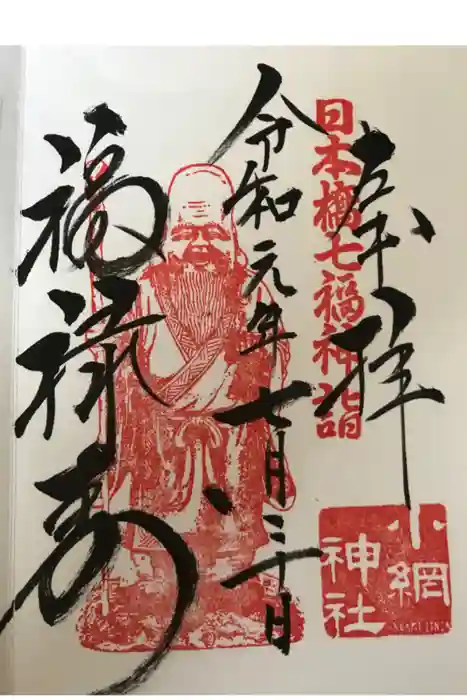 奉拝
日本橋七福神詣
令和元年七月三十日
福禄寿
小網
神社
KOAMI JINJA